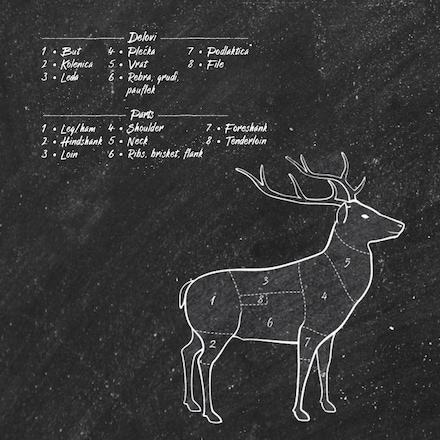 Delovi
1 • But 4 • Plečka 7 • Podlaktica
2 • Kolenica 5 • Vrat 8 • File
3 • Leđa 6 • Rebra, grudi,
pauflek
Parts
1 • Leg/ham 4 • Shoulder 7 • Foreshank
2 • Hindshank 5 • Neck 8 • Tenderloin
3 • Loin 6 • Ribs, brisket, flank
5
3
1 8 4
6
2 7